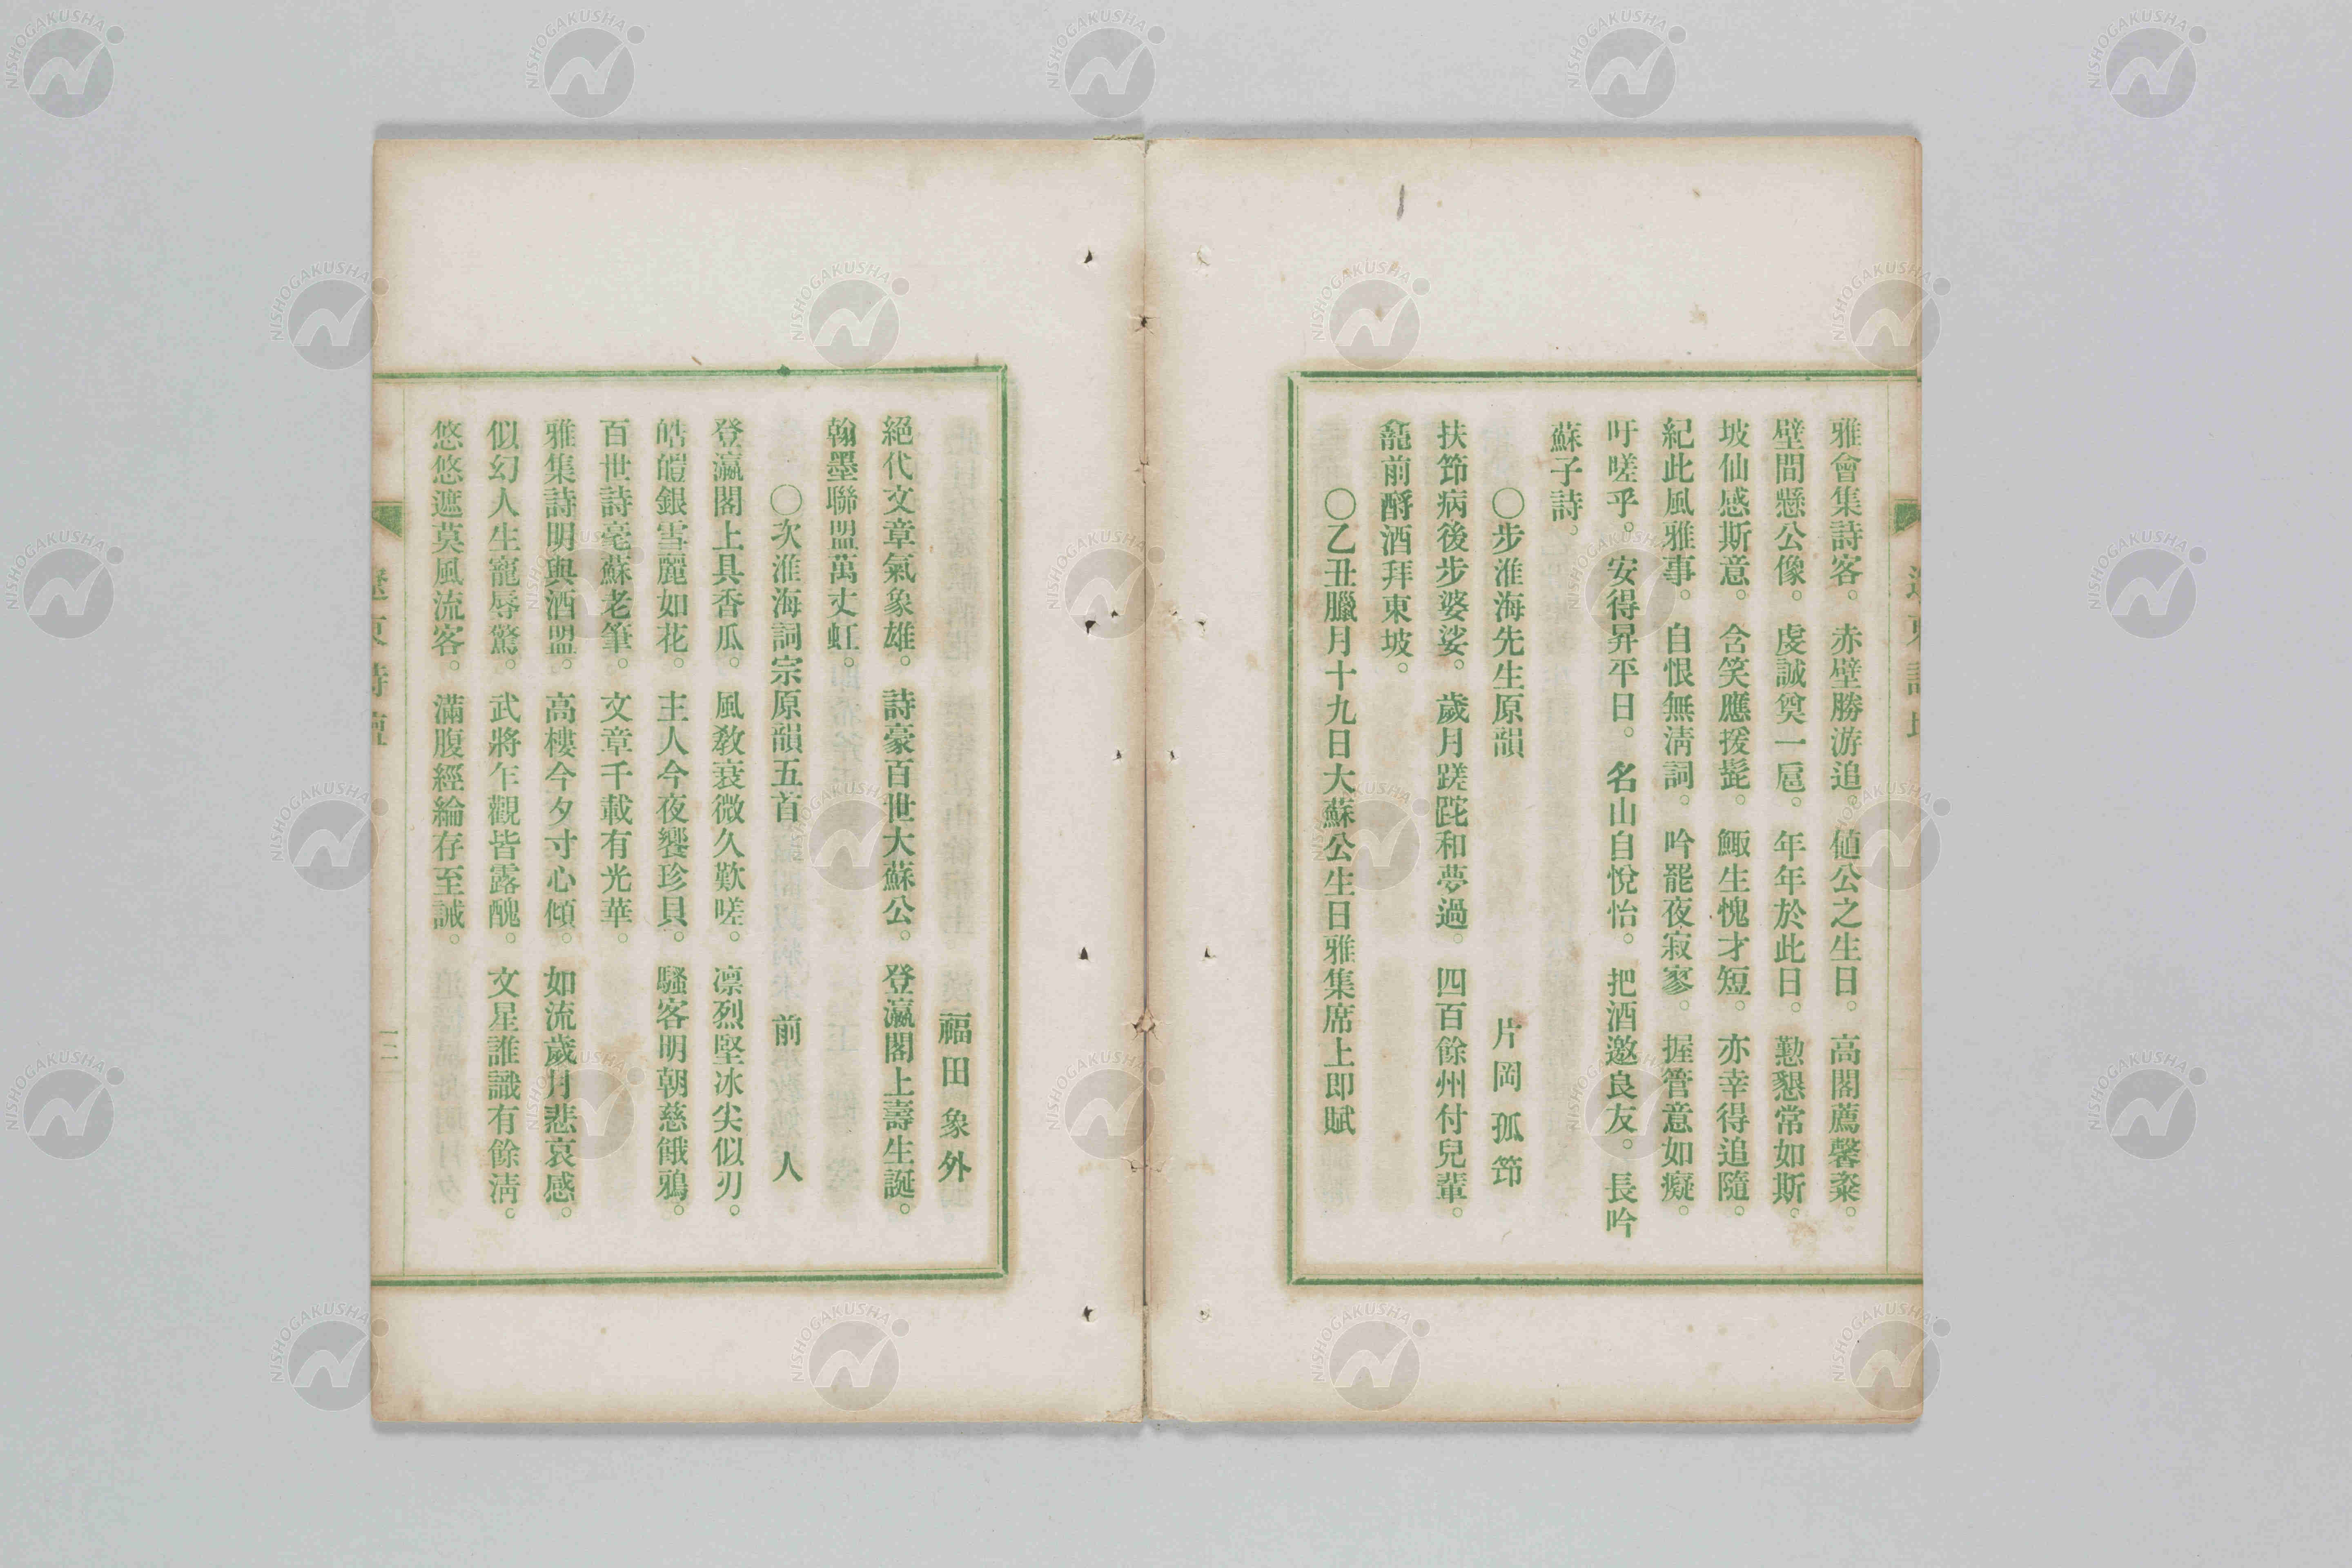 雅會集詩客。赤壁勝游追。値公之生日。高閣薦馨粢。
壁間懸公像。虔誠奠一巵。年年於此日。懃懇常如斯。
坡仙感斯意。含笑應援髭。鯫生愧才短。亦幸得追隨。
紀此風雅事。自恨無淸詞。吟罷夜寂寥。握管意如癡。
吁嗟乎。安得昇平日。名山自悅怡。把酒邀良友。長吟
蘇子詩。
〇步淮海先生原韻 片岡孤笻
扶笻病後步婆娑。歲月蹉跎和夢過。四百餘州付兒輩。
龕前酹酒拜東坡。
〇乙丑臘月十九日大蘇公生日雅集席上即賦
福田象外
絕代文章氣象雄。詩豪百世大蘇公。登瀛閣上壽生誕。
翰墨聯盟萬丈虹。
〇次淮海詞宗原韻五首 前人
登瀛閣上具香瓜。風敎衰微久歎嗟。凛烈堅冰尖似刃。
皓皚銀雪麗如花。主人今夜饗珍貝。騷客明朝慈餓鴉。
百世詩毫蘇老筆。文章千載有光華。
雅集詩明與酒盟。高樓今夕寸心傾。如流歲月悲哀感。
似幻人生寵辱驚。武將乍觀皆露醜。文星誰識有餘淸。
悠悠遮莫風流客。滿腹經綸存至誠。
遼東詩壇
二
NISHOGAKUSHA